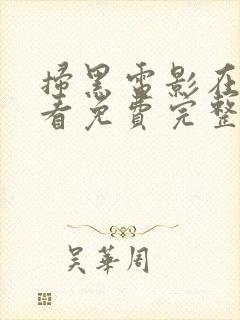 掃黑電影在
看免費完整
吳華周